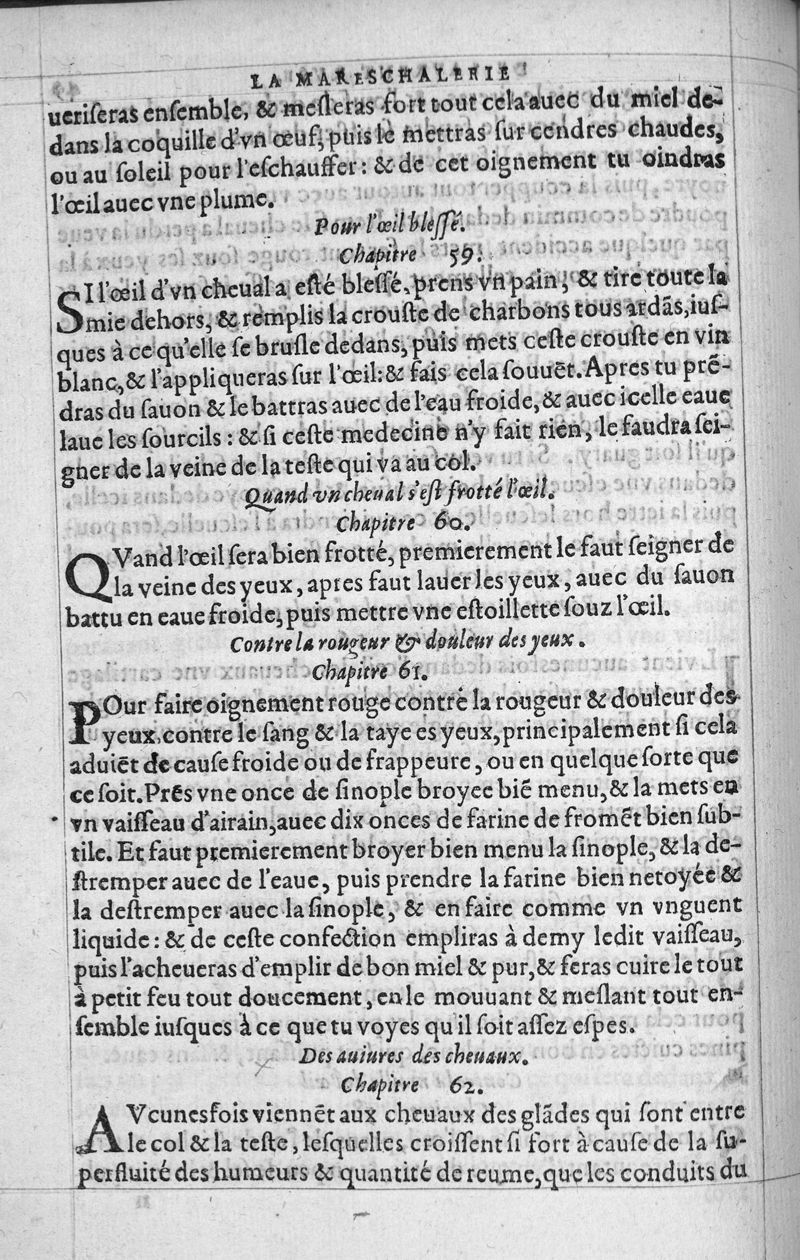 LA MARESCHALERIE
ueriſeras enſemble, & meſleras fort tout cela auec du miel de-
dans la coquille d'vn œuf, puis le mettras ſur cendres chaudes,
ou au ſoleil pour l'eſchauffer: & de cet oignement tu oindras
l'œil auec vne plume.
Pour l'œil bleſſé.
Chapitre 59.
SI l'œil d'vn cheual a eſté bleſſé, prens vn pain, & tire toute la
mie dehors, & remplis la crouſte de charbons tous ardãs, iuſ-
ques à ce qu'elle ſe bruſle dedans, puis mets ceſte crouſte en vin
blanc, & l'appliqueras ſur l'œil: & fais cela ſouuẽt. Apres tu prẽ-
dras du ſauon & le battras auec de l'eau froide, & auec icelle eaue
laue les ſourcils: & ſi ceſte medecine n'y fait rien, le faudra ſei-
gner de la veine de la teſte qui va au col.
Quand vn cheual s'eſt frotté l'œil.
Chapitre 60.
QVand l'œil ſera bien frotté, premierement le faut ſeigner de
la veine des yeux, apres faut lauer les yeux, auec du ſauon
battu en eaue froide, puis mettre vne eſtoillette ſouz l'œil.
Contre la rougeur & douleur des yeux.
Chapitre 61.
POur faire oignement rouge contre la rougeur & douleur des
yeux. contre le ſang & la taye es yeux, principalement ſi cela
aduiẽt de cauſe froide ou de frappeure, ou en quelque ſorte que
ce ſoit. Prẽs vne once de ſinople broyee biẽ menu, & la mets en
vn vaiſſeau d'airain, auec dix onces de farine de fromẽt bien ſub-
tile. Et faut premierement broyer bien menu la ſinople, & la de-
ſtremper auec de l'eaue, puis prendre la farine bien netoyée &
la deſtremper auec la ſinople, & en faire comme vn vnguent
liquide: & de ceſte confection empliras à demy ledit vaiſſeau,
puis l'acheueras d'emplir de bon miel & pur, & feras cuire le tout
à petit feu tout doucement, en le mouuant & meſlant tout en-
ſemble iuſques à ce que tu voyes qu'il ſoit aſſez eſpes.
Des auiures des cheuaux.
Chapitre 62.
AVcunesfois viennẽt aux cheuaux des glãdes qui ſont entre
le col & la teſte, leſquelles croiſſent ſi fort à cauſe de la ſu-
perfluité des humeurs & quantité de reume, que les conduits du